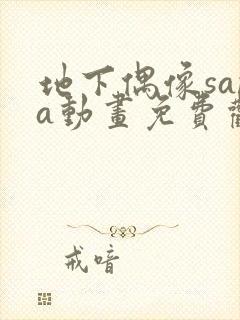 地下偶像sa
a動畫免費
戒喑